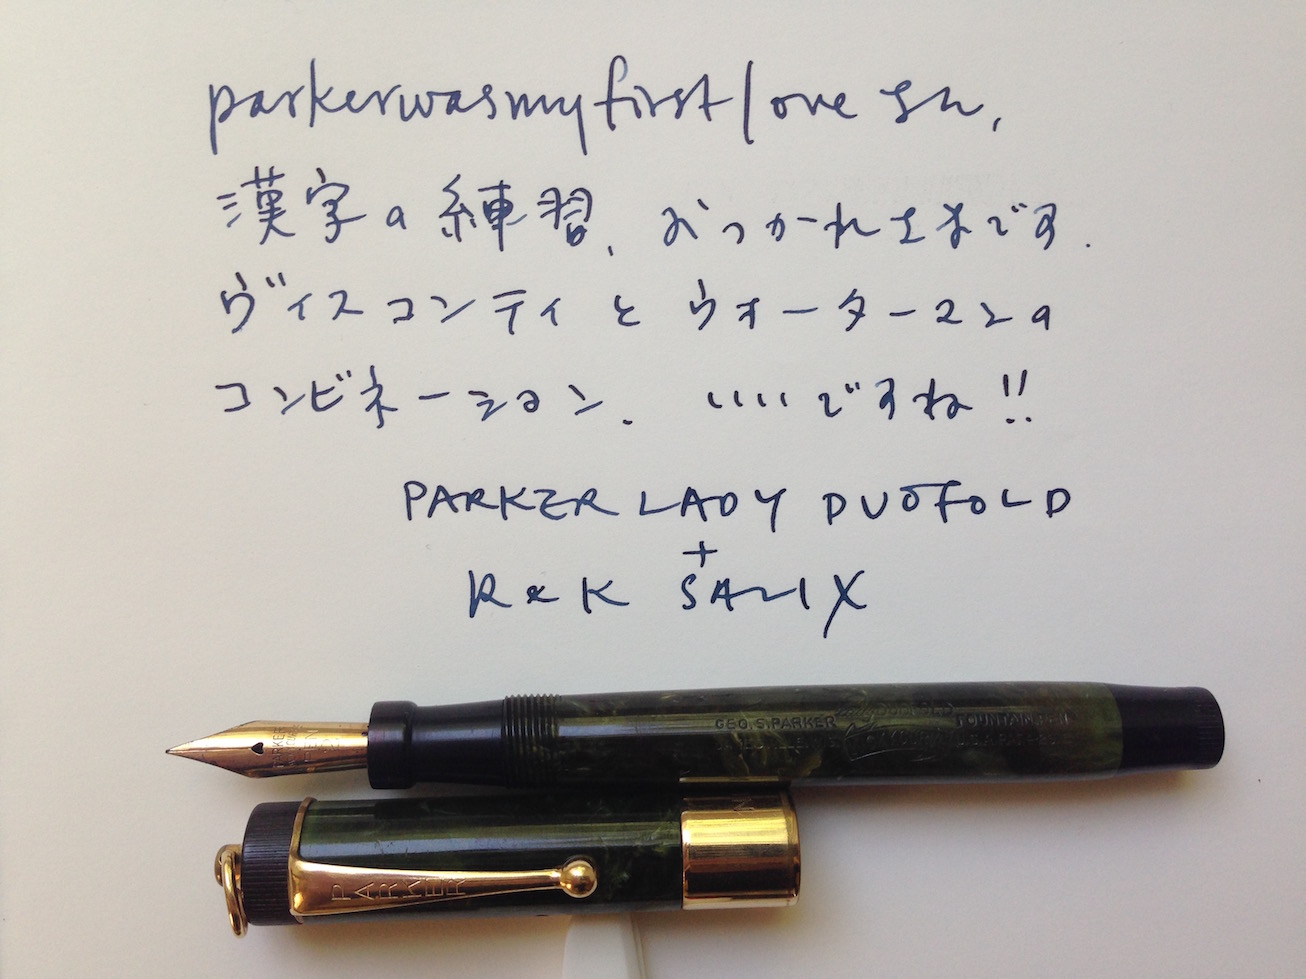 parkerwasmyfirstlove さん,
漢字の練習、おつかれさまです.
ヴィスコンティとウォーターマンの
コンビネーション. いいですね!!
PARKER LADY DUOFOLD
+
R&K SALIX
GEO.S.PARKER DUOFOLD FOUNTAIN PEN
PARKER
PEN
PARKER